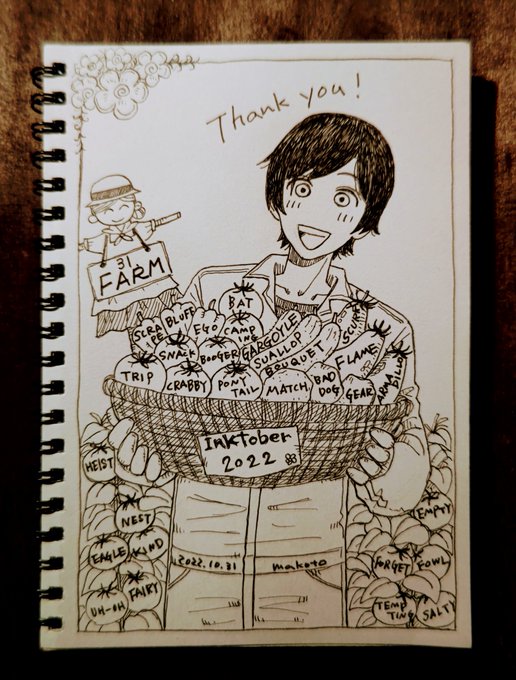 Thank you!
31
FARM
BAT
SCRA
PE
BLUFF
EGO
CAMP
ING
GARGOYLE
SCURRY
SNACK
BOOGER
SUALLOP
BOUQUET
FLAME
ARMA
DILLO
TRIP
CRABBY
PONY
TAIL
MATCH
BAD
DOG
GEAR
Inktober
2022
HEIST
NEST
EAGLE
KIND
UH-OH
FAIRY
EMPTY
FORGET
FOWL
TEMP
TING
SALTY
2022.10.31
makoto